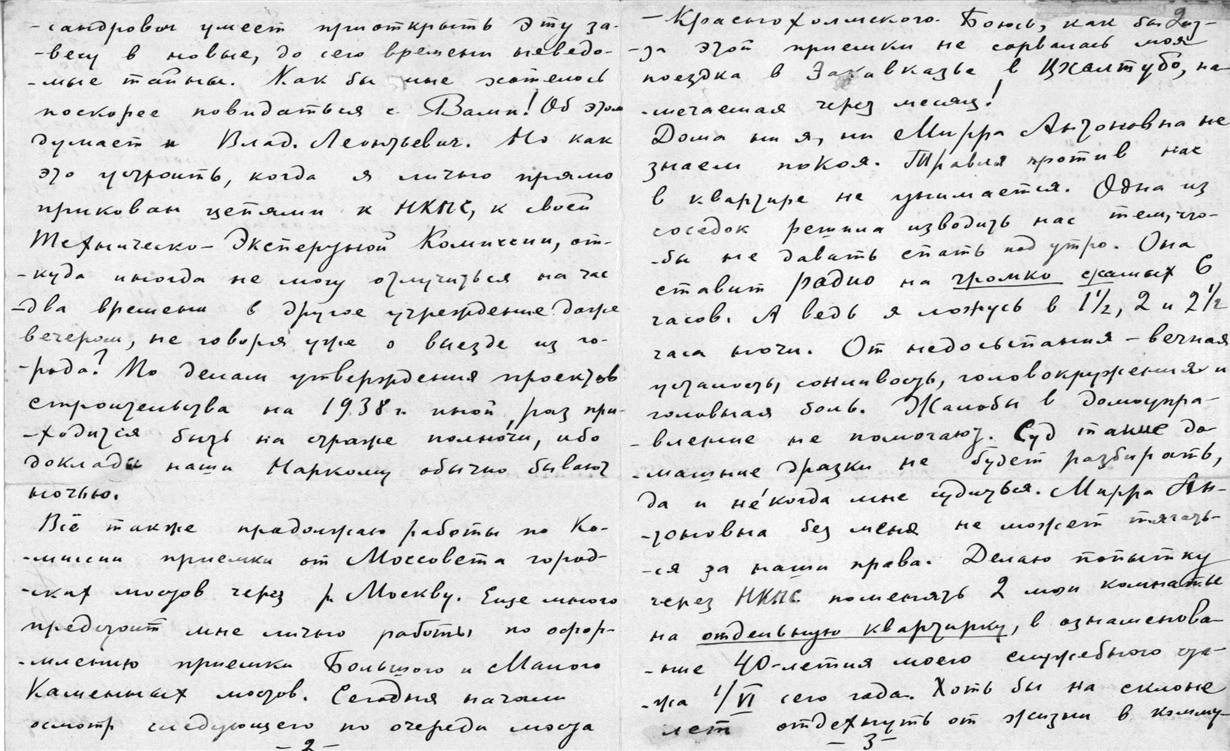 -сандрович умеет приоткрыть эту за-
-весу в новые, до сего времени неведо-
-мые тайны. Как бы мне хотелось
поскорее повидаться с Вами! Об этом
думает и Влад. Леонтьевич. Но как
это устроить, когда я лично прямо
прикован цепями к НКПС, к своей
Техническо-Экспертной Комиссии, от-
-куда иногда не могу отлучиться на час
-два времени в другое учреждение даже
вечером, не говоря уже о выезде из го-
-рода? По делам утверждения проектов
строительства на 1938 г. иной раз при-
-ходится быть на страже полно́чи, ибо
доклады наши Наркому обычно бывают
ночью.
Всё также продолжаю работы по Ко-
-миссии приемки от Моссовета город-
-ских мостов через р. Москву. Еще много
предстоит мне лично работы по офор-
-млению приемки Большого и Малого
Каменных мостов. Сегодня начали
осмотр следующего по очереди моста
-2-
-Красно холмского. Боюсь, как бы из-
-за этой приемки не сорвалась моя
поездка в Закавказье в Цхалтубо, на-
-мечаемая через месяц!
Дома ни я, ни Мирра Антоновна не
знаем покоя. Травля против нас
в квартире не унимается. Одна из
соседок решила изводить нас тем, что-
-бы не давать спать под утро. Она
ставит радио на громко с самых 6
часов. А ведь я ложусь в 1½, 2 и 2½
часа ночи. От недосыпания - вечная
усталость, сонливость, головокружения и
головная боль. Жалобы в домоупра-
-вление не помогают. Суд такие до-
машние дрязги не будет разбирать,
да и не́когда мне судиться. Мирра Ан-
-тоновна без меня не может тягать-
-ся за наши права. Делаю попытку
через НКПС поменять 2 мои комнаты
на отдельную квартирку, в ознаменова-
-ние 40-летия моего служебного ста-
-жа 1/VI сего года. Хоть бы на склоне
лет отдохнуть от жизни в комму-
-3-